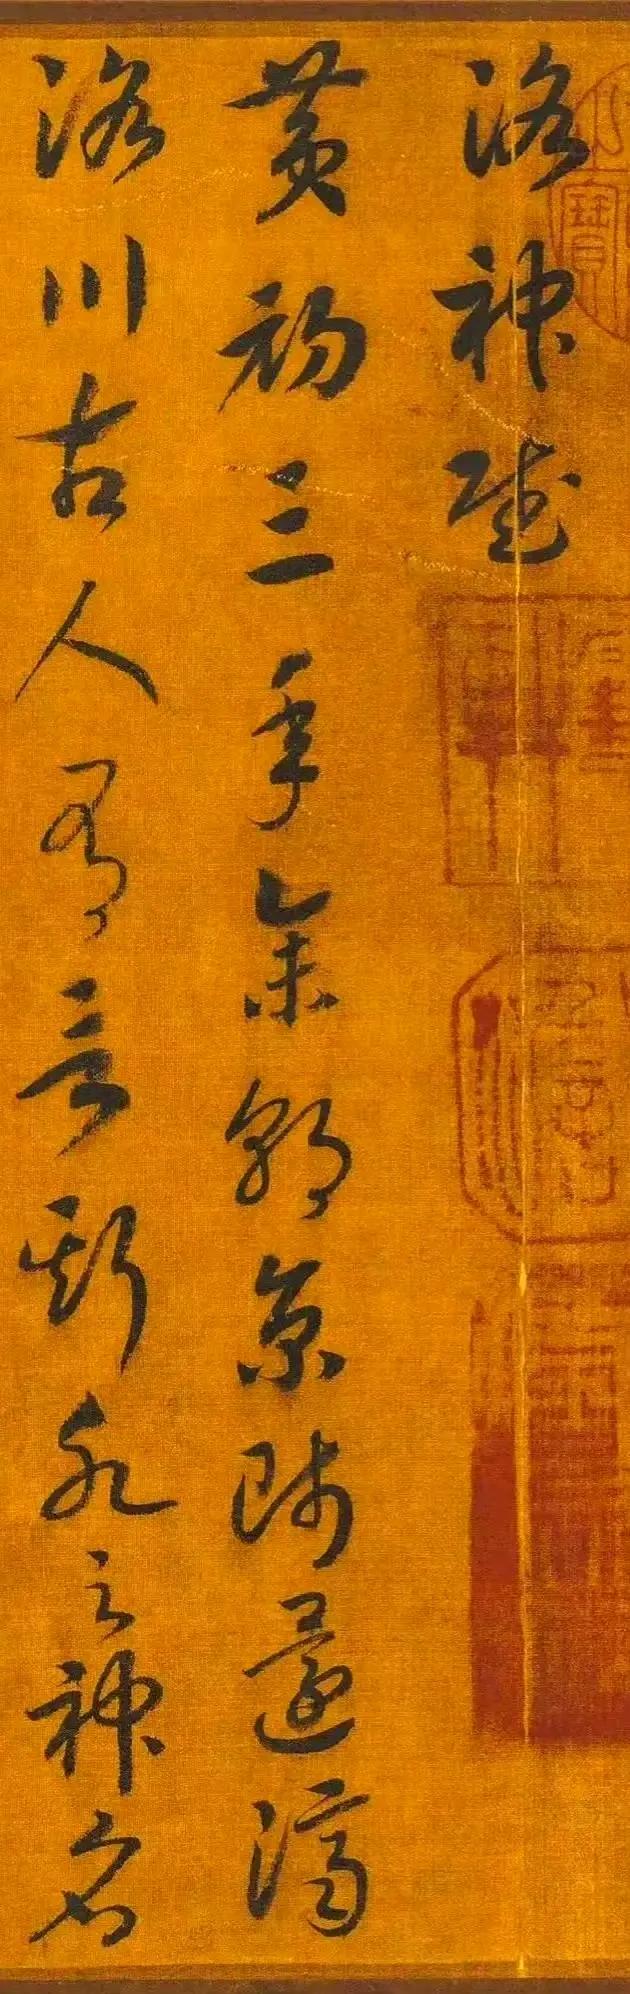 洛神賦
黃初三年余朝京師還濟
洛川古人有言斯水之神名